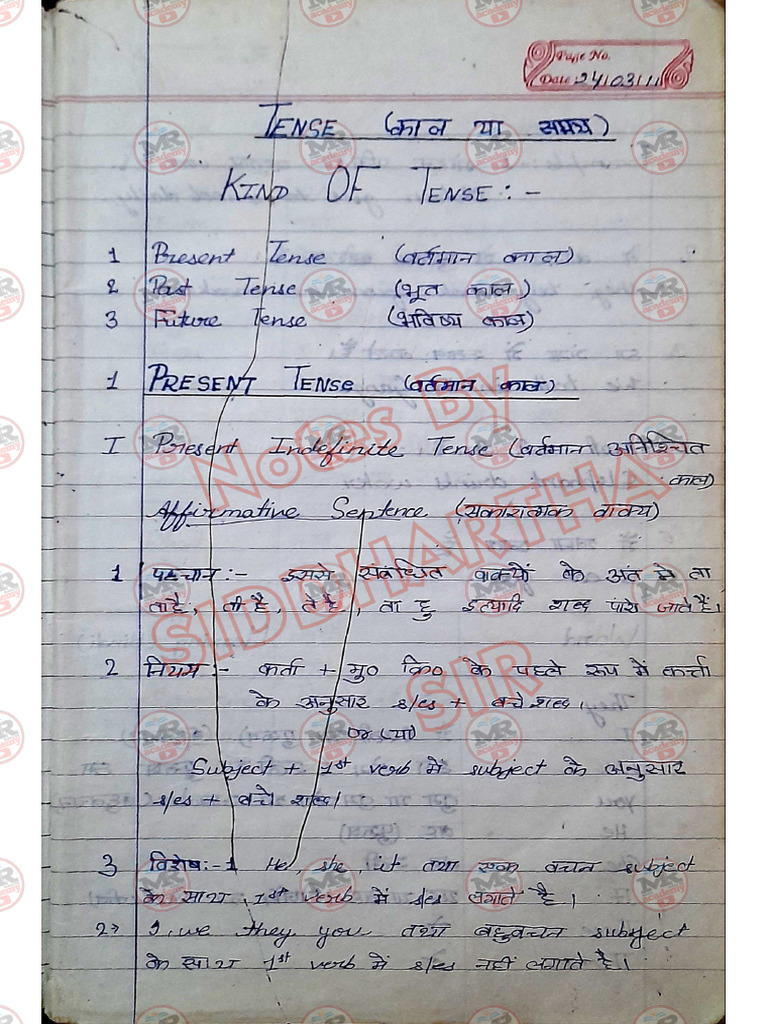 Page No.
Date 24/03/11
TENSE (काल या समय)
KIND OF TENSE :-
1 Present Tense (वर्तमान काल)
2 Past Tense (भूत काल)
3 Future Tense (भविष्य काल)
1 PRESENT TENSE (वर्तमान काल)
I Present Indefinite Tense (वर्तमान अनिश्चित
काल)
Affirmative Sentence (सकारात्मक वाक्य)
1 पहचान :- इससे संबंधित वाक्यों के अंत मे ता
ता है, ती है, ते है, ता हु इत्यादि शब्द पाये जाते हैं।
2 नियम :- कर्ता + मु० क्रि० के पहले रूप में कर्त्ता
के अनुसार s/es + बचे शब्द।
or (या)
Subject + 1st verb में subject के अनुसार
s/es + बचे शब्द।
3 विशेष :- 1 He, she, it तथा एक वचन subject
के साथ 1st verb में s/es लगाते है।
2→ I, we they you तथा बहुवचन subject
के साथ 1st verb में s/es नहीं लगाते है।
Notes By
SIDDHARTHA
SIR
MR
academy